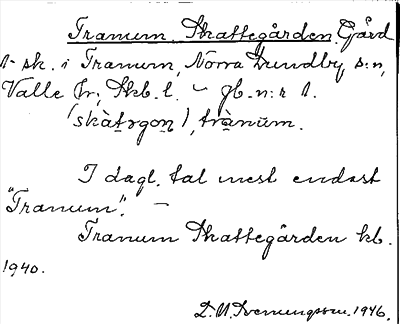 Tranum Skattegården. Gård
1- sk. i Tranum, Norra Lundby s:n,
Valle hr, Skb. l. – gb. n:r 1.
(skàtrgon), trànum.
I dagl. tal mest endast
"Tranum". –
Tranum Skattegården kb.
1940.
1946.